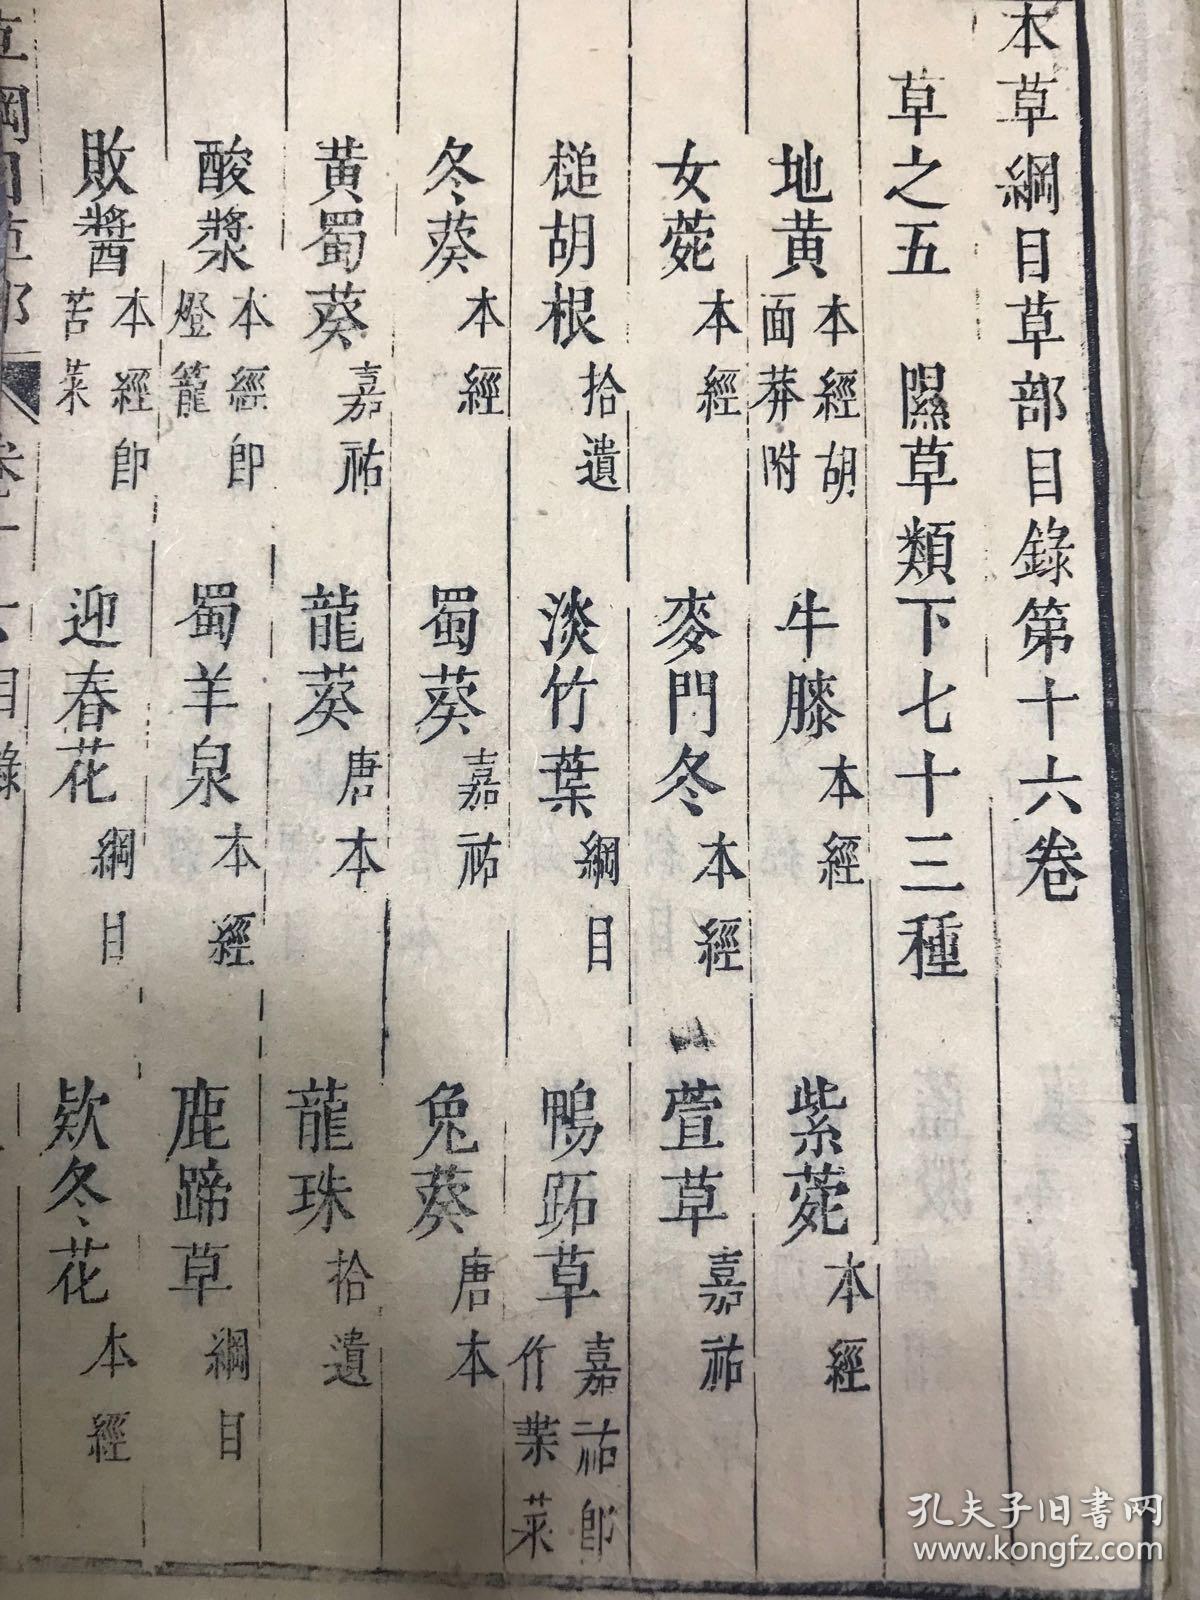 本草綱目草部目錄第十六卷
草之五　隰草類下七十三種
地黃本經胡面莽附　牛膝本經　紫菀本經
女菀本經　麥門冬本經　萱草嘉祐
槌胡根拾遺　淡竹葉綱目　鴨跖草嘉祐即竹葉菜
冬葵本經　蜀葵嘉祐　兔葵唐本
黃蜀葵嘉祐　龍葵唐本　龍珠拾遺
酸漿本經即燈籠　蜀羊泉本經　鹿蹄草綱目
敗醬本經即苦菜　迎春花綱目　欵冬花本經
孔夫子旧书网
www.kongfz.com